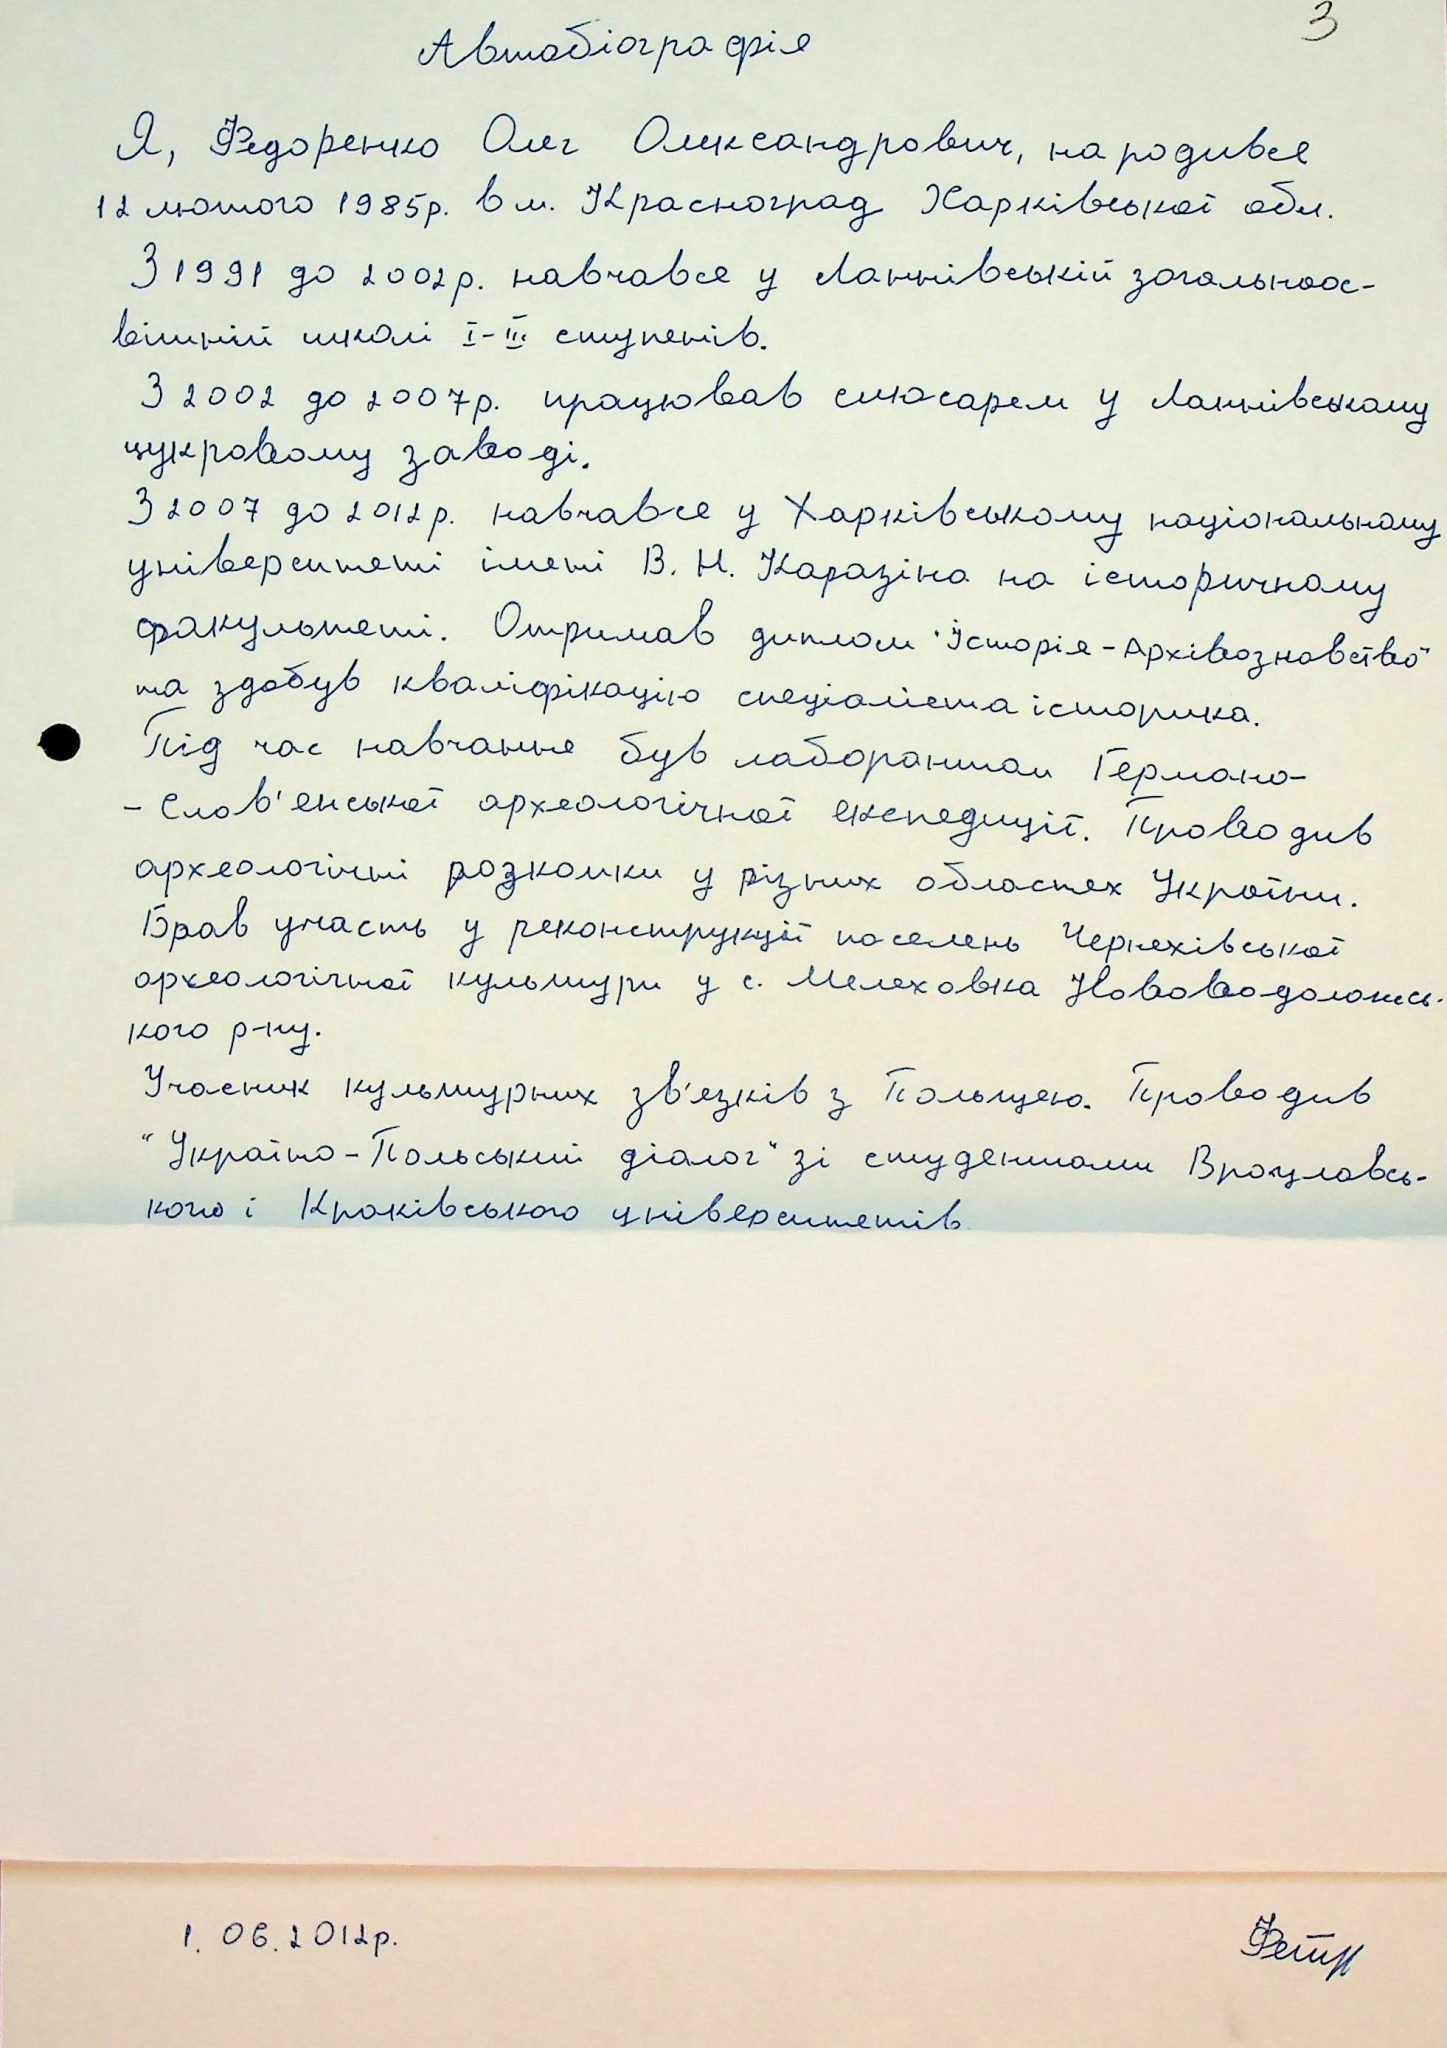 3
Автобіографія
Я, Федоренко Олег Олександрович, народився
12 лютого 1985р. в м. Красноград Харківської обл.
З 1991 до 2002р. навчався у Ланнівській загальноос-
вітній школі І-ІІІ ступенів.
З 2002 до 2007р. працював слюсарем у Ланнівському
цукровому заводі.
З 2007 до 2012р. навчався у Харківському національному
університеті імені В. Н. Каразіна на історичному
факультеті. Отримав диплом "Історія-Архівознавство"
та здобув кваліфікацію спеціаліста історика.
Під час навчання був лаборантом Германо-
-Слов'янської археологічної експедиції. Проводив
археологічні розкопки у різних областях України.
Брав участь у реконструкції поселень Черняхівської
археологічної культури у с. Мелеховка Нововодолажсь-
кого р-ну.
Учасник культурних зв'язків з Польщею. Проводив
"Україно-Польський діалог" зі студентами Вроцлавсь-
кого і Краківського університетів
1. 06. 2012р.